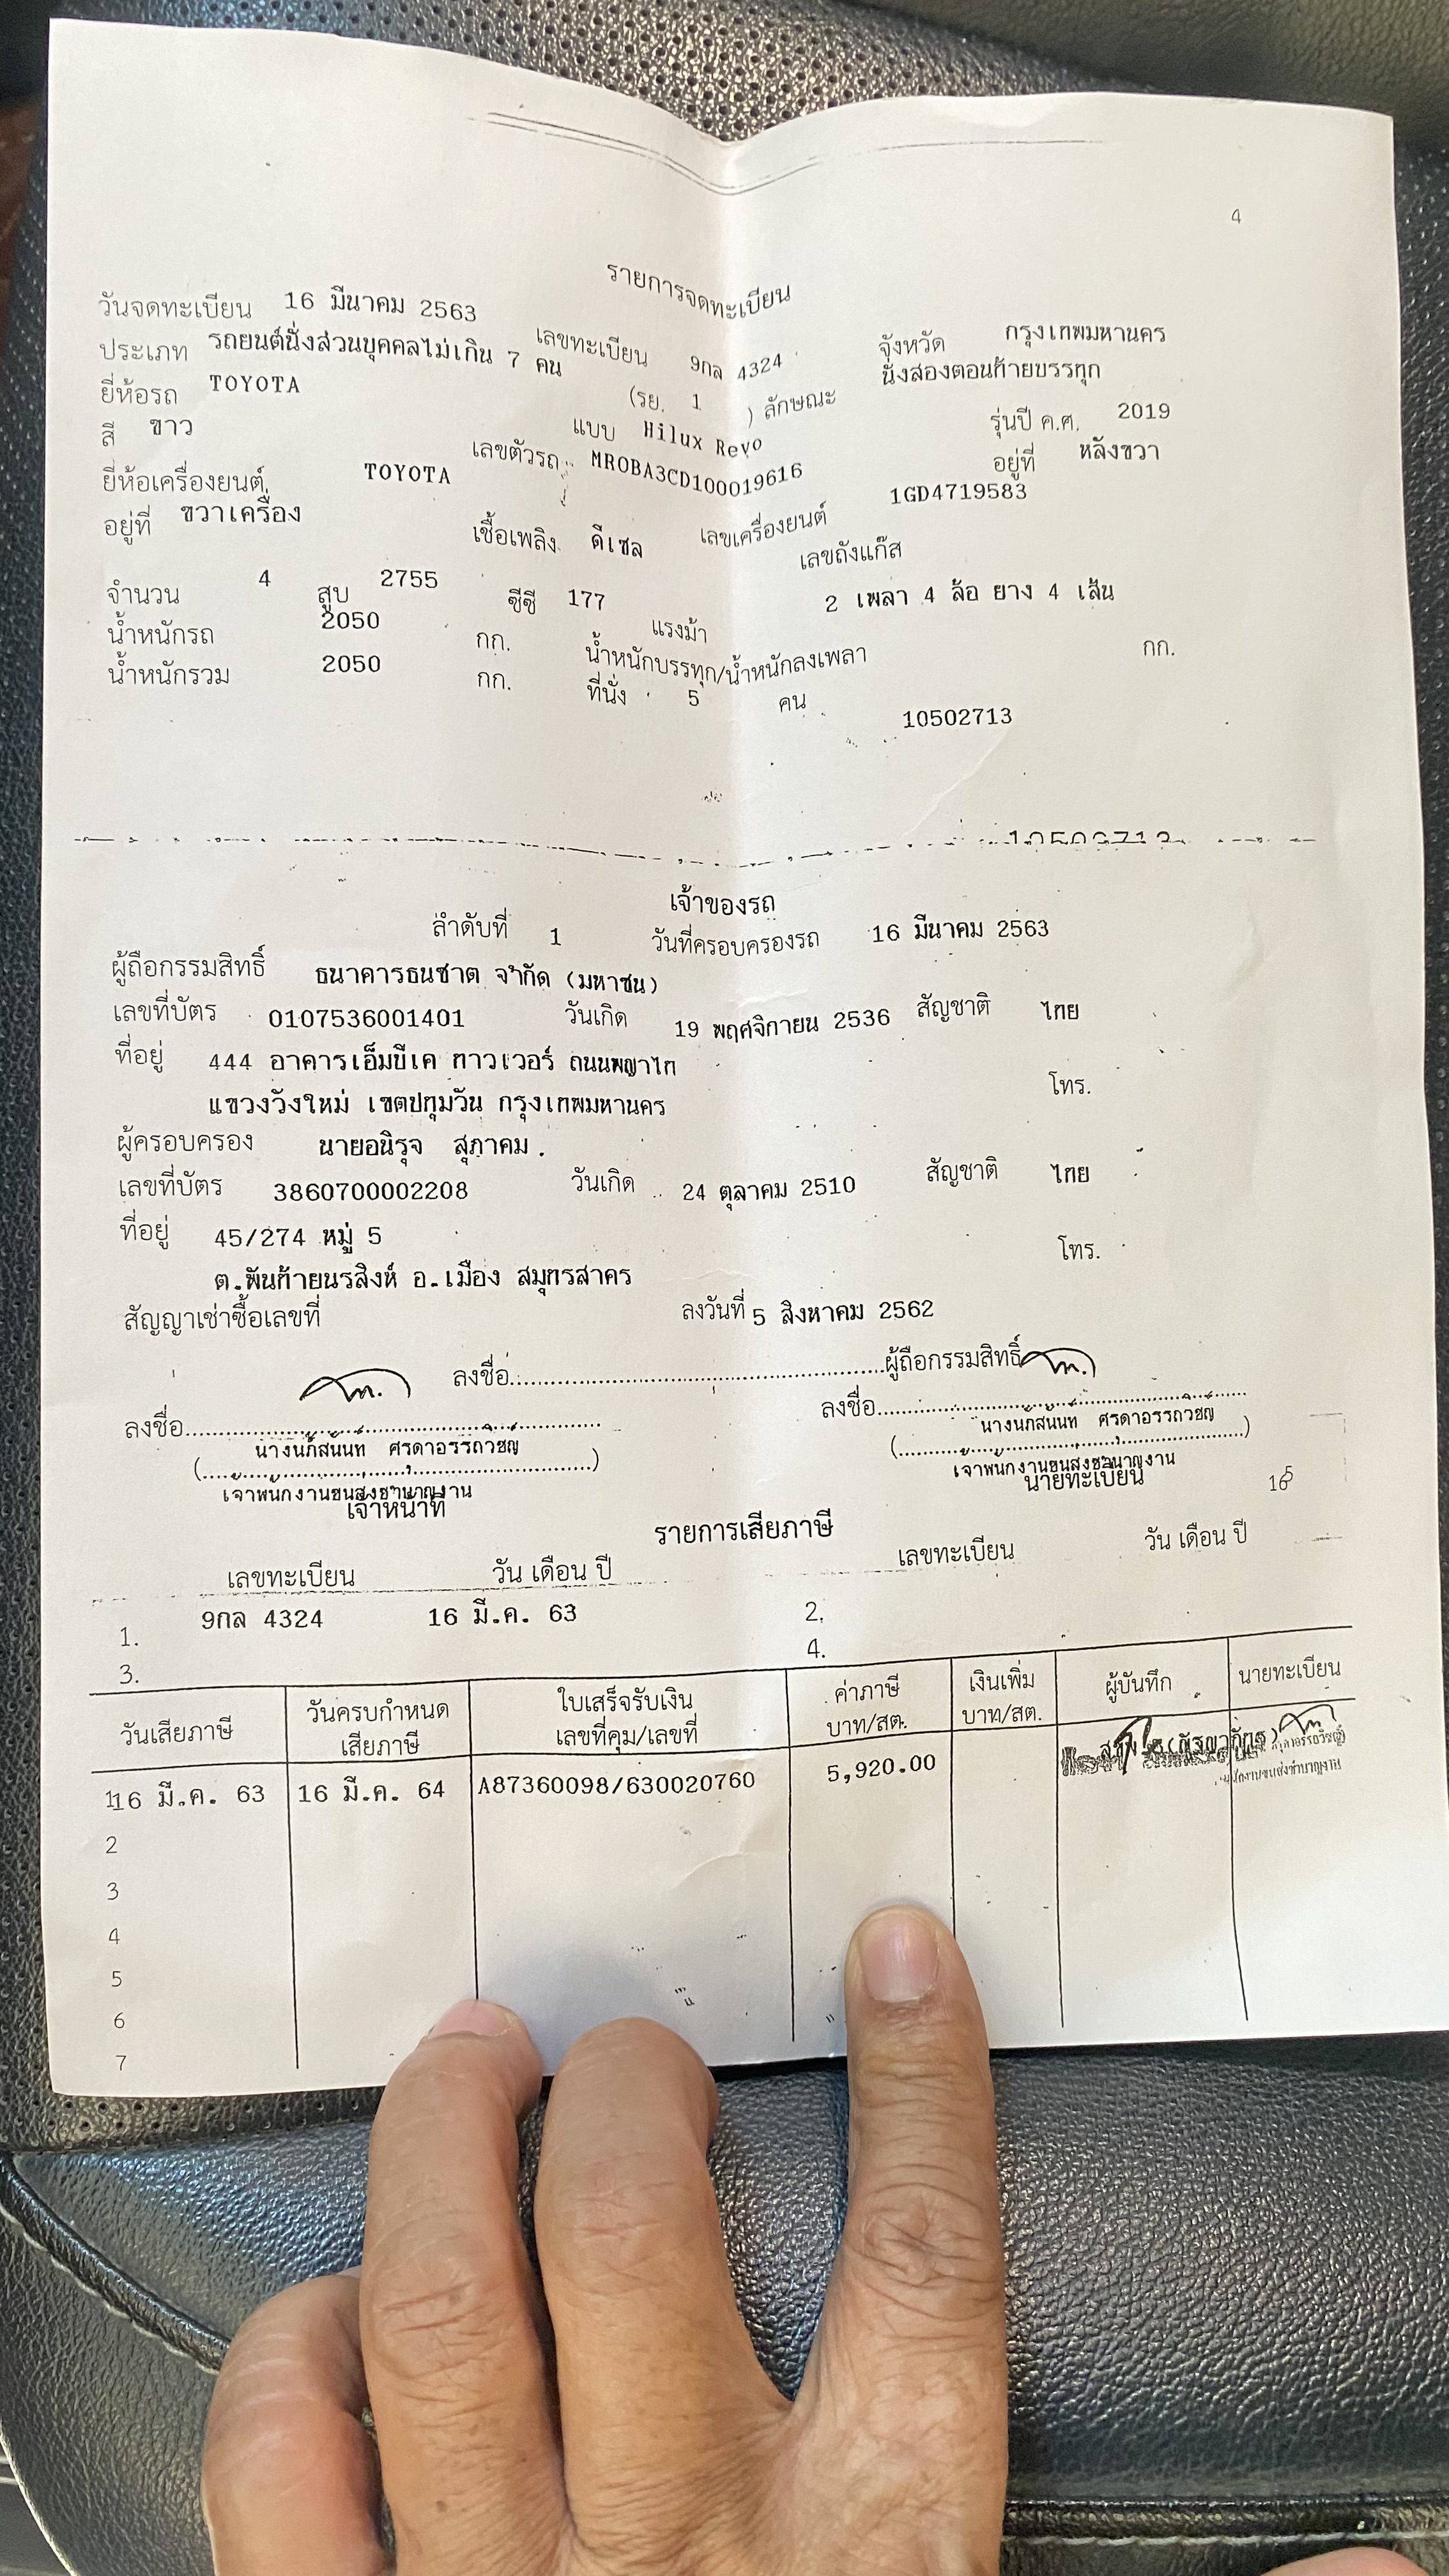 4
รายการจดทะเบียน
วันจดทะเบียน 16 มีนาคม 2563 เลขทะเบียน 9กล 4324 จังหวัด กรุงเทพมหานคร
ประเภท รถยนต์นั่งส่วนบุคคลไม่เกิน 7 คน (รย. 1 ) ลักษณะ นั่งสองตอนท้ายบรรทุก
ยี่ห้อรถ TOYOTA แบบ Hilux Revo รุ่นปี ค.ศ. 2019
สี ขาว เลขตัวรถ MR0BA3CD100019616 อยู่ที่ หลังขวา
ยี่ห้อเครื่องยนต์ TOYOTA เลขเครื่องยนต์ 1GD4719583
อยู่ที่ ขวาเครื่อง เชื้อเพลิง ดีเซล เลขถังแก๊ส
จำนวน 4 สูบ 2755 ซีซี 177 แรงม้า 2 เพลา 4 ล้อ ยาง 4 เส้น
น้ำหนักรถ 2050 กก. น้ำหนักบรรทุก/น้ำหนักลงเพลา กก.
น้ำหนักรวม 2050 กก. ที่นั่ง 5 คน
10502713
10502713
เจ้าของรถ
ลำดับที่ 1 วันที่ครอบครองรถ 16 มีนาคม 2563
ผู้ถือกรรมสิทธิ์ ธนาคารธนชาต จำกัด (มหาชน)
เลขที่บัตร 0107536001401 วันเกิด 19 พฤศจิกายน 2536 สัญชาติ ไทย
ที่อยู่ 444 อาคารเอ็มบีเค ทาวเวอร์ ถนนพญาไท
แขวงวังใหม่ เขตปทุมวัน กรุงเทพมหานคร โทร.
ผู้ครอบครอง นายอนิรุจ สุภาคม .
เลขที่บัตร 3860700002208 วันเกิด 24 ตุลาคม 2510 สัญชาติ ไทย
ที่อยู่ 45/274 หมู่ 5
ต.พันท้ายนรสิงห์ อ.เมือง สมุทรสาคร โทร.
สัญญาเช่าซื้อเลขที่ ลงวันที่ 5 สิงหาคม 2562
ลงชื่อ ผู้ถือกรรมสิทธิ์
ลงชื่อ ลงชื่อ
เจ้าหน้าที่ นายทะเบียน
16
5
รายการเสียภาษี
เลขทะเบียน วัน เดือน ปี เลขทะเบียน วัน เดือน ปี
1. 9กล 4324 16 มี.ค. 63 2.
3. 4.
วันเสียภาษี วันครบกำหนดเสียภาษี ใบเสร็จรับเงิน เลขที่คุม/เลขที่ ค่าภาษี บาท/สต. เงินเพิ่ม บาท/สต. ผู้บันทึก นายทะเบียน
1 16 มี.ค. 63 16 มี.ค. 64 A87360098/630020760 5,920.00
2
3
4
5
6
7